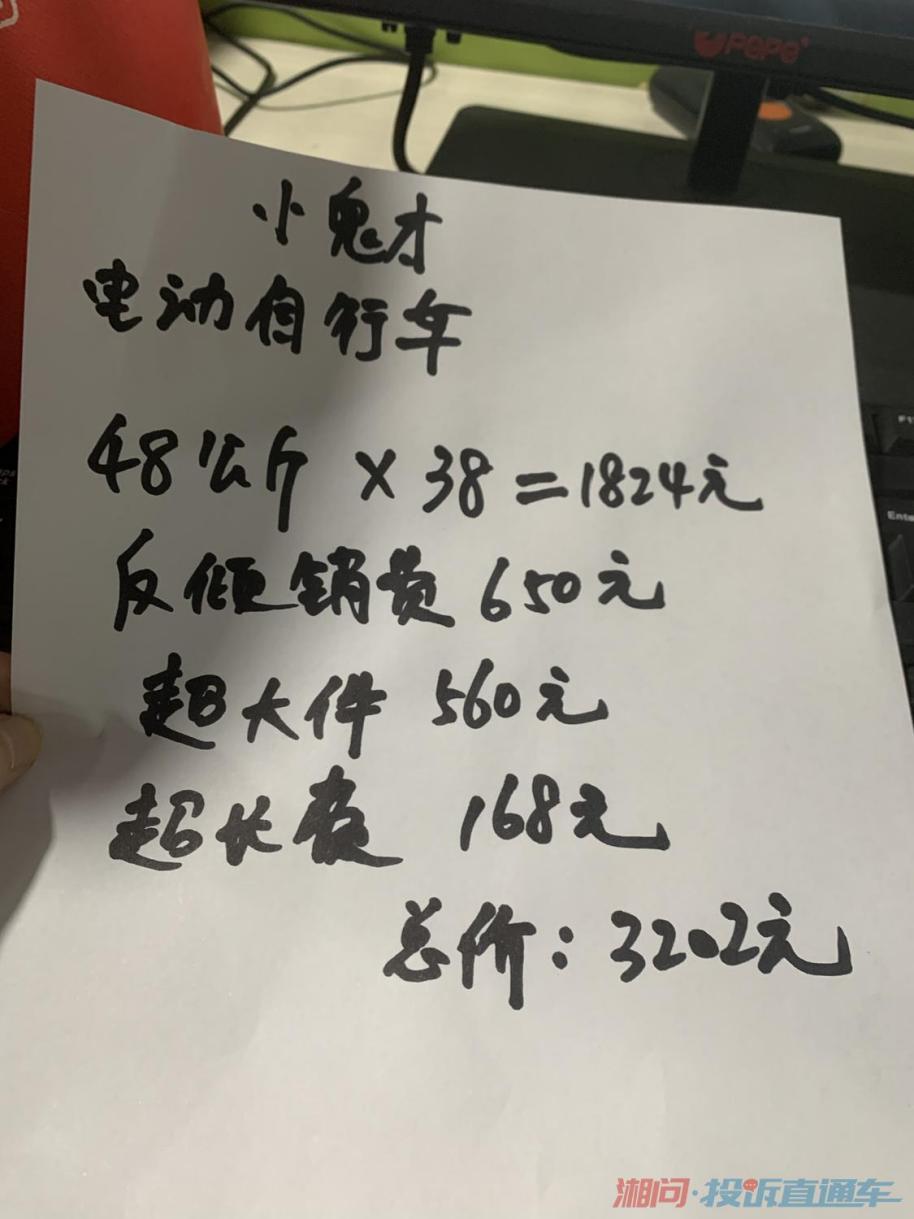 小鬼才
电动自行车
48公斤 × 38 = 1824元
反倾销费 650元
超大件 560元
超长费 168元
总价：3202元
Enter
湘问·投诉直通车